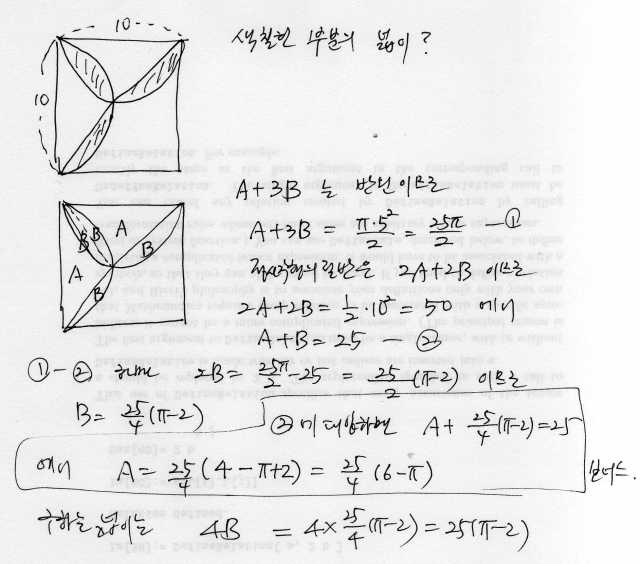 10
색칠한 부분의 넓이?
10
A+3B 는 반원이므로
A
B B
A
B
B
A+3B = π·5²/2 = 25π/2 — ①
정사각형의 절반은 2A+2B 이므로
2A+2B = 1/2·10² = 50 에서
A+B = 25 — ②
①-② 하면 2B = 25π/2 - 25 = 25/2 (π-2) 이므로
B = 25/4 (π-2)
②에 대입하면 A + 25/4 (π-2) = 25
에서 A = 25/4 (4-π+2) = 25/4 (6-π)
보너스.
구하는 넓이는 4B = 4×25/4 (π-2) = 25(π-2)